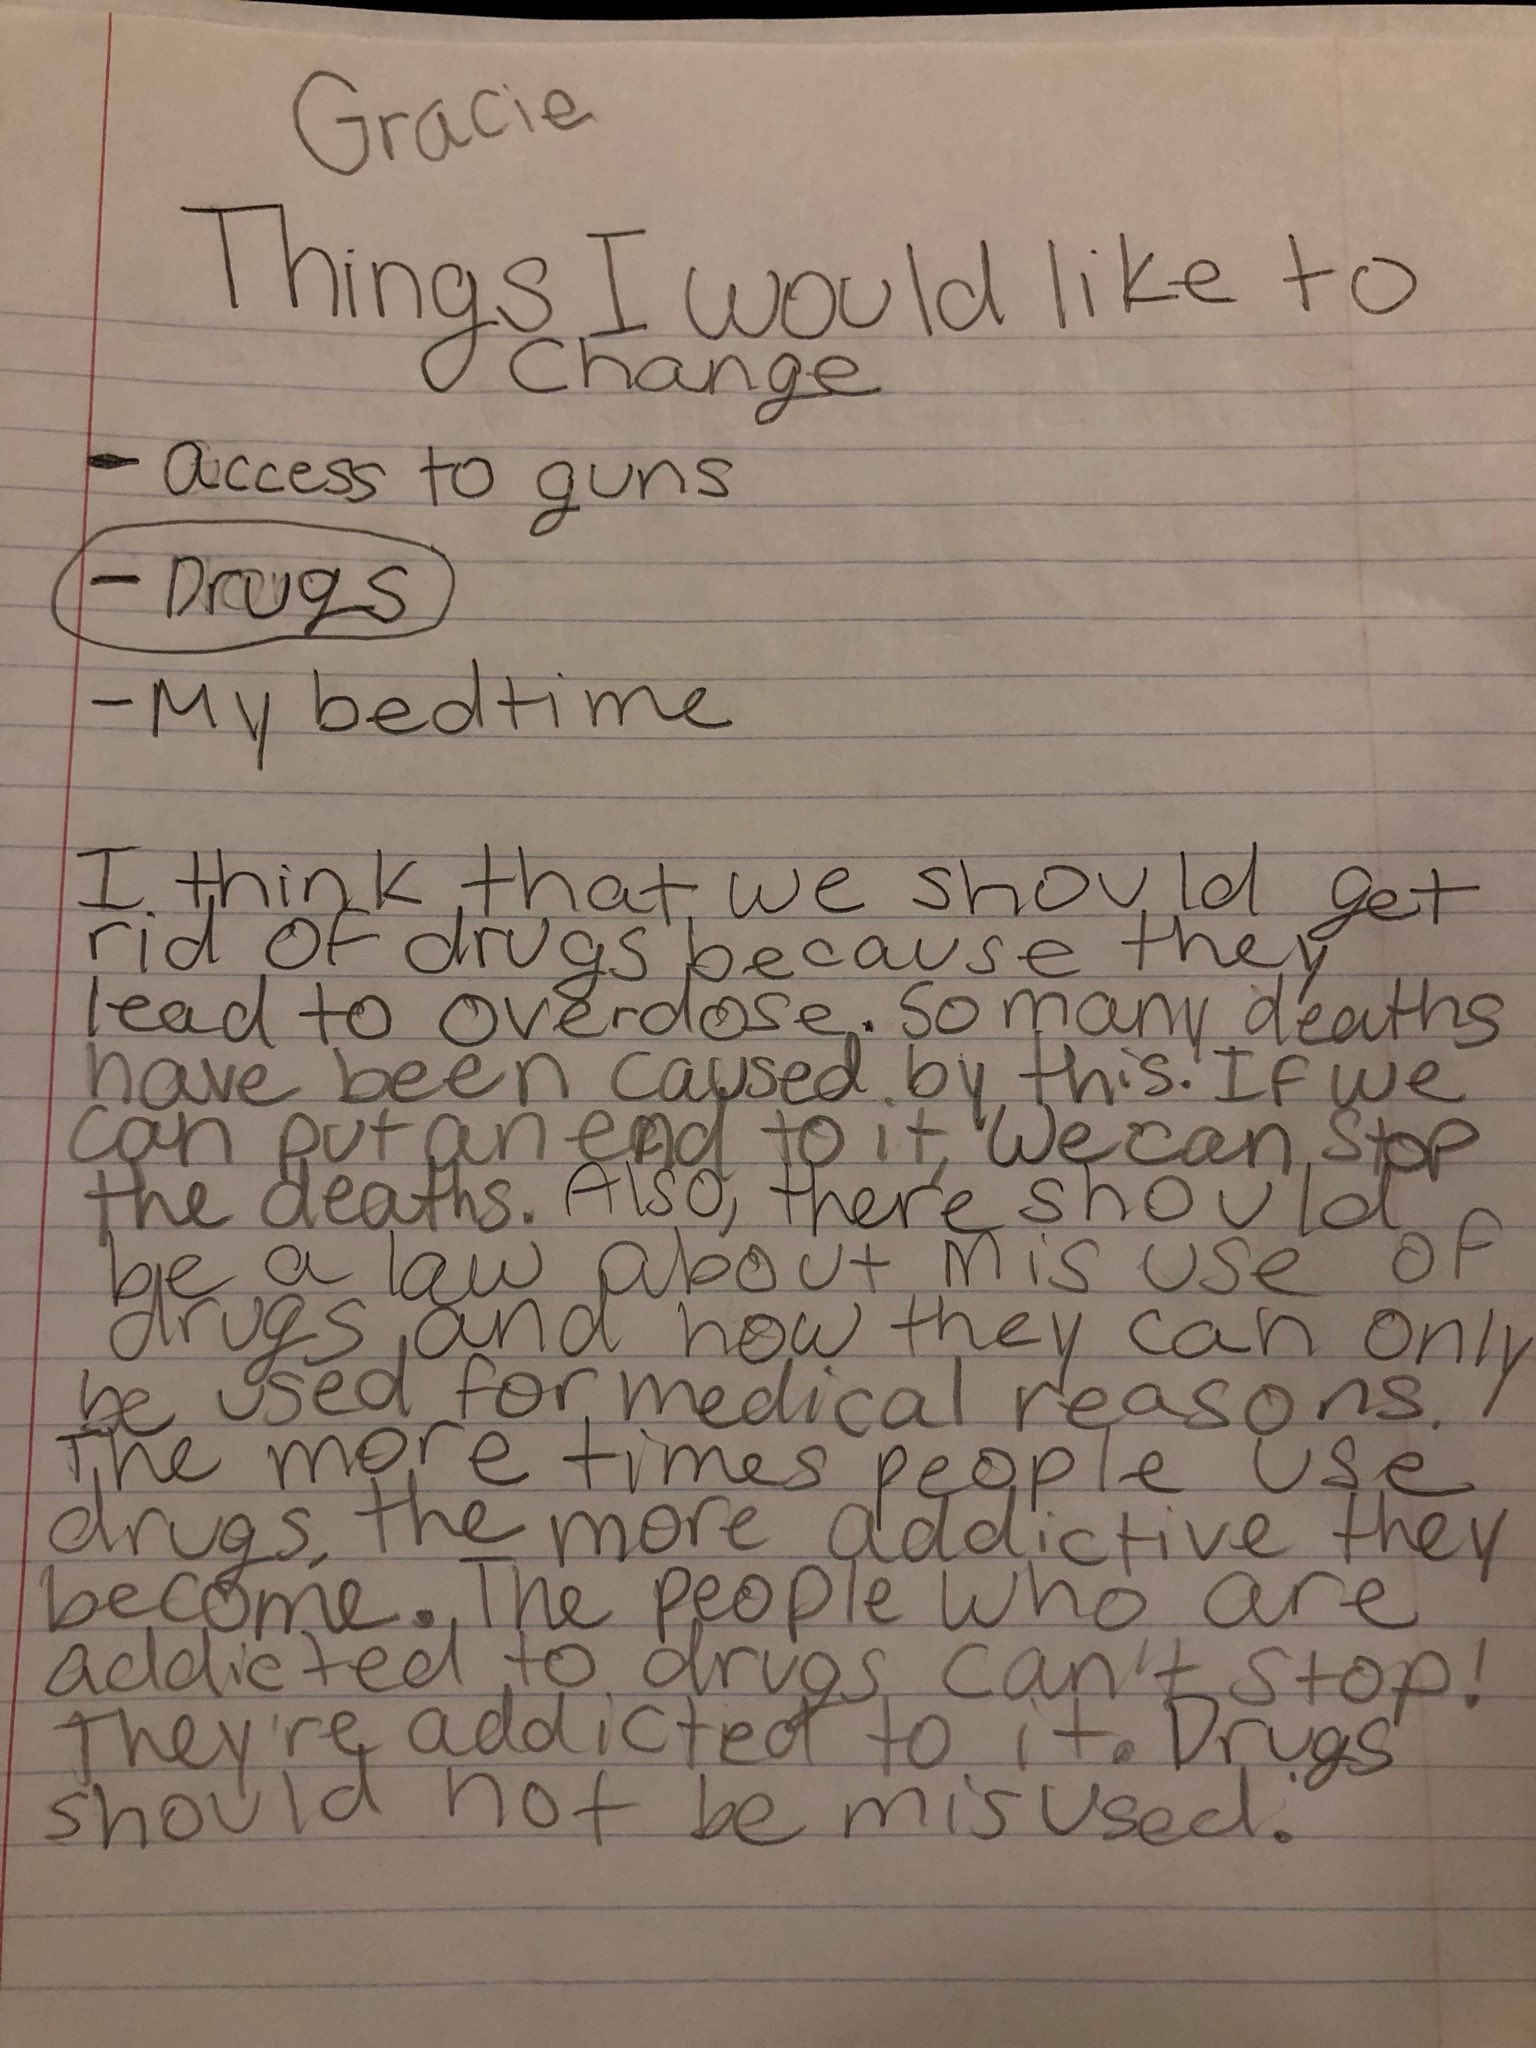 Gracie
Things I would like to
change
- access to guns
- Drugs
- My bedtime
I think that we should get
rid of drugs because they
lead to overdose. So many deaths
have been caused by this. If we
can put an end to it, we can stop
the deaths. Also, there should
be a law about mis use of
drugs and how they can only
be used for medical reasons.
The more times people use
drugs, the more addictive they
become. The people who are
addicted to drugs can't stop!
They're addicted to it. Drugs
should not be misused.